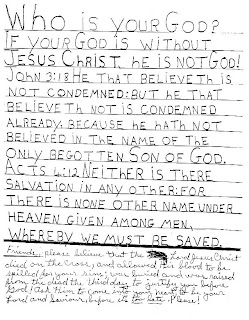 WHO IS YOUR GOD?
IF YOUR GOD IS WITHOUT
JESUS CHRIST HE IS NOT GOD!
JOHN 3:18 HE THAT BELIEVETH IS
NOT CONDEMNED: BUT HE THAT
BELIEVETH NOT IS CONDEMNED
ALREADY, BECAUSE HE HATH NOT
BELIEVED IN THE NAME OF THE
ONLY BEGOTTEN SON OF GOD.
ACTS 4:12 NEITHER IS THERE
SALVATION IN ANY OTHER: FOR
THERE IS NONE OTHER NAME UNDER
HEAVEN GIVEN AMONG MEN,
WHEREBY WE MUST BE SAVED.
Friends, please believe that the Lord Jesus Christ
died on the cross, and allowed his blood to be
spilled for your sins; was buried and was raised
from the dead the third day to justify you before
God! Ask Him to come and be your
Lord and Saviour, before it's too late. Please!